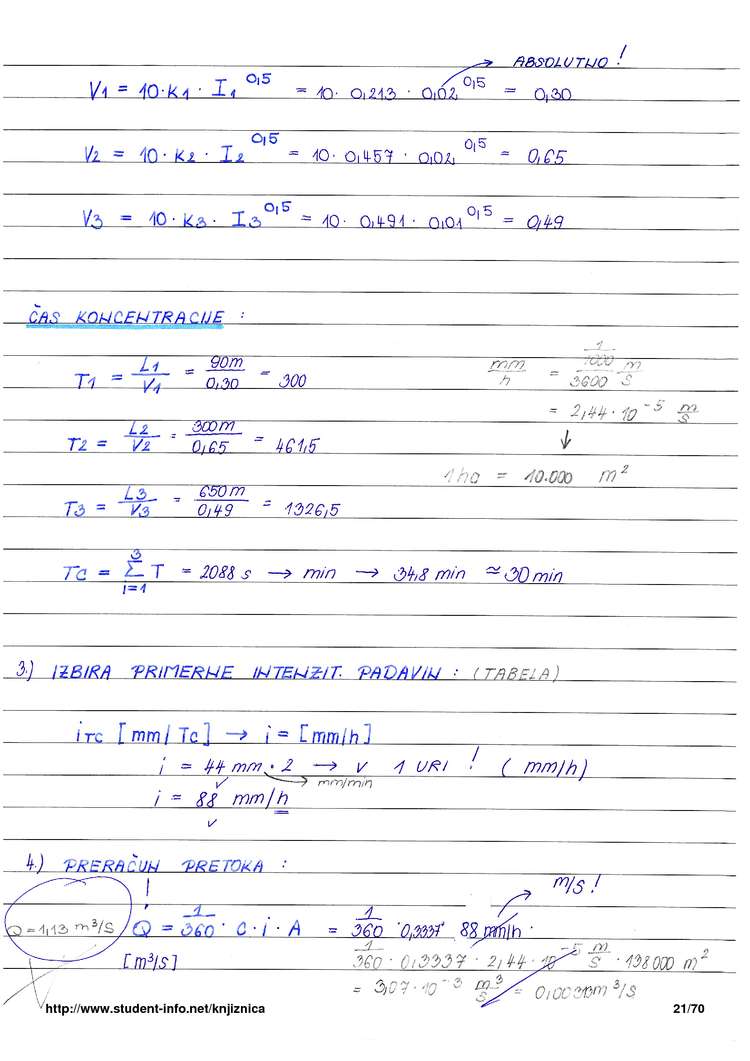 ABSOLUTNO !
V1 = 10·K1 · I1^0,5 = 10· 0,213 · 0,02^0,5 = 0,30
V2 = 10·K2 · I2^0,5 = 10· 0,457 · 0,02^0,5 = 0,65
V3 = 10·K3 · I3^0,5 = 10· 0,491 · 0,01^0,5 = 0,49
ČAS KONCENTRACIJE :
T1 = L1/V1 = 90m/0,30 = 300
mm/h = 1/1000/3600 m/s
= 2,44·10^-5 m/s
T2 = L2/V2 = 300m/0,65 = 461,5
↓
1ha = 10.000 m²
T3 = L3/V3 = 650m/0,49 = 1326,5
Tc = 3 Σ i=1 T = 2088 s → min → 34,8 min ≈ 30 min
3.) IZBIRA PRIMERNE INTENZIT. PADAVIN : (TABELA)
iTC [mm/Tc] → i = [mm/h]
i = 44 mm · 2 → V 1 URI ! (mm/h)
mm/min
i = 88 mm/h
4.) PRERAČUN PRETOKA :
m/s !
Q = 1,13 m³/s ! Q = 1/360 · C·i·A = 1/360 · 0,3337 · 88 mm/h ·
[m³/s] 1/360 · 0,3337 · 2,44·10^-5 m/s · 138000 m²
= 3,07·10^-3 m³/s = 0,00313m³/s
http://www.student-info.net/knjiznica 21/70